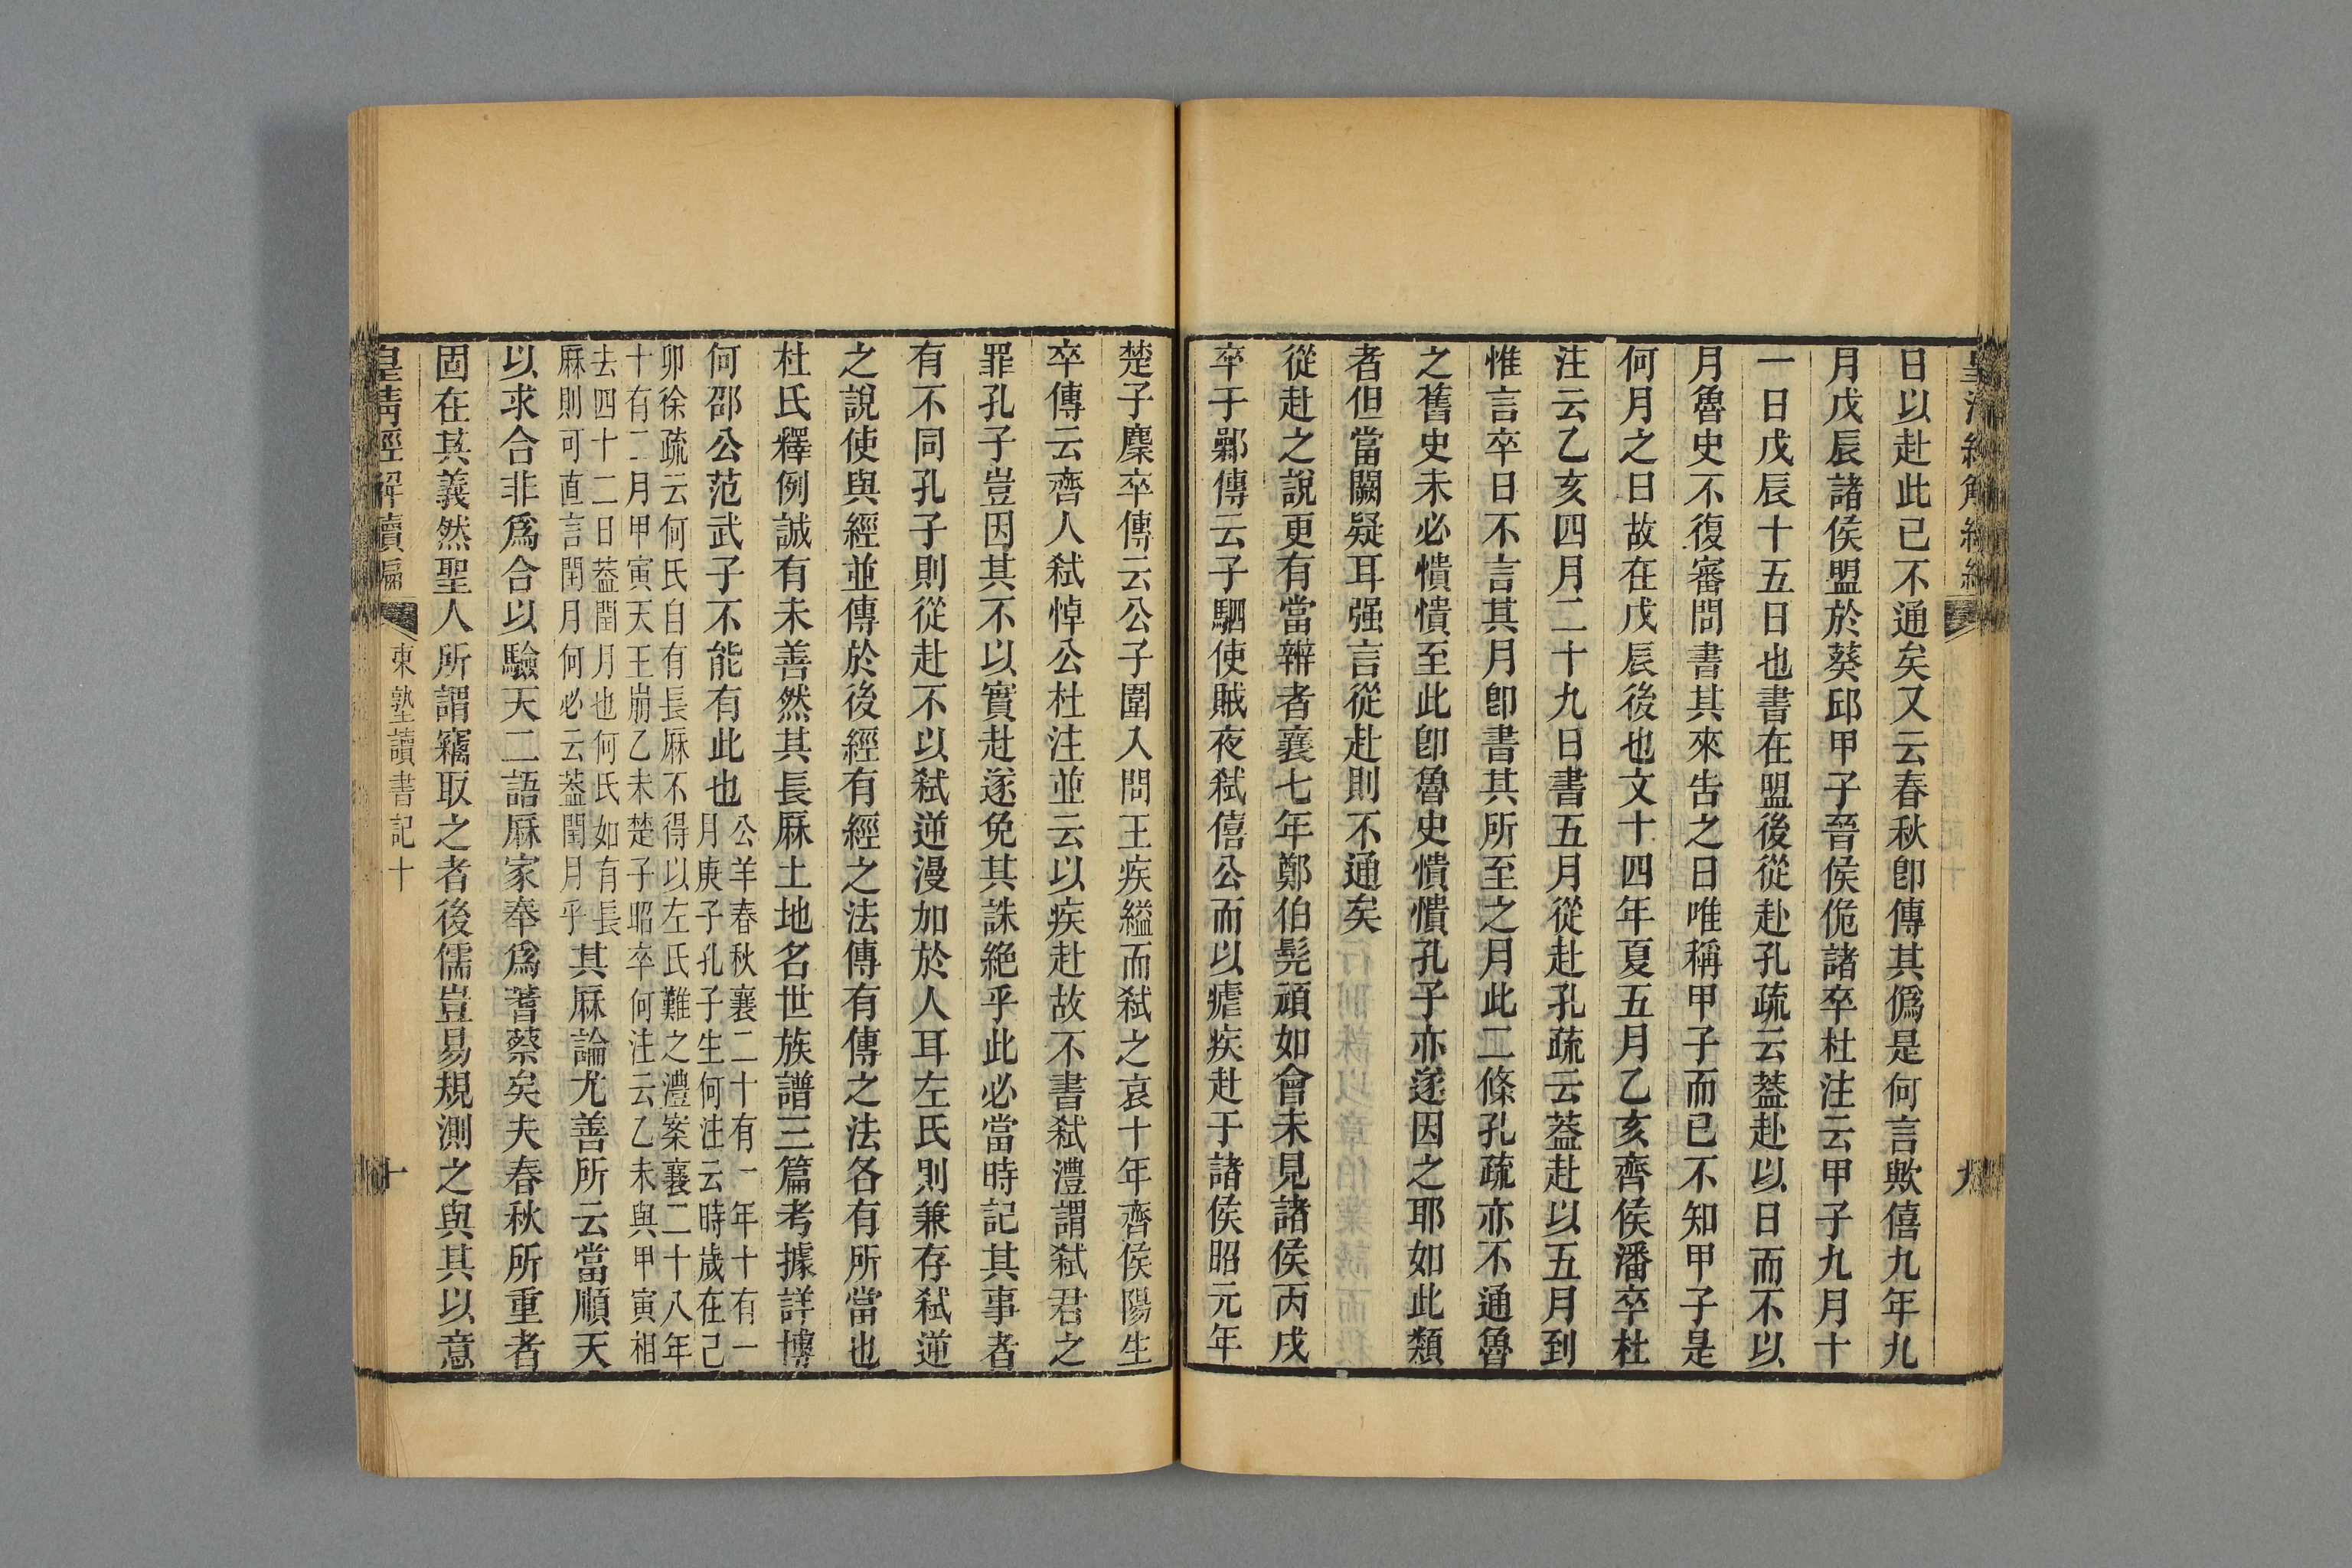 日以赴此已不通矣又云春秋卽傳其僞是何言歟僖九年九
月戊辰諸侯盟於葵邱甲子晉侯佹諸卒杜注云甲子九月十
一日戊辰十五日也書在盟後從赴孔疏云葢赴以日而不以
月魯史不復審問書其來告之日唯稱甲子而已不知甲子是
何月之日故在戊辰後也文十四年夏五月乙亥齊侯潘卒杜
注云乙亥四月二十九日書五月從赴孔疏云葢赴以五月到
惟言卒日不言其月卽書其所至之月此二條孔疏亦不通魯
之舊史未必憒憒至此卽魯史憒憒孔子亦遂因之耶如此類
者但當闕疑耳强言從赴則不通矣
從赴之說更有當辨者襄七年鄭伯髡頑如會未見諸侯丙戌
卒于鄵傳云子駟使賊夜弑僖公而以瘧疾赴于諸侯昭元年
九
楚子麇卒傳云公子圍入問王疾縊而弑之哀十年齊侯陽生
卒傳云齊人弑悼公杜注並云以疾赴故不書弑澧謂弑君之
罪孔子豈因其不以實赴遂免其誅絶乎此必當時記其事者
有不同孔子則從赴不以弑逆漫加於人耳左氏則兼存弑逆
之說使與經並傳於後經有經之法傳有傳之法各有所當也
杜氏釋例誠有未善然其長厤土地名世族譜三篇考據詳博
何邵公范武子不能有此也公羊春秋襄二十有一年十有一
月庚子孔子生何注云時歲在己
卯徐疏云何氏自有長厤不得以左氏難之澧案襄二十八年
十有二月甲寅天王崩乙未楚子昭卒何注云乙未與甲寅相
去四十二日葢閏月也何氏如有長
厤則可直言閏月何必云葢閏月乎其厤論尤善所云當順天
以求合非爲合以驗天二語厤家奉爲蓍蔡矣夫春秋所重者
固在其義然聖人所謂竊取之者後儒豈易規測之與其以意
皇清經解續編
東塾讀書記十
十